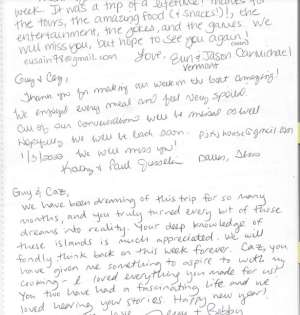 week. It was a trip of a lifetime! Thanks for
the tours, the amazing food (+ snacks!), the
entertainment, the jokes, and the games. We
will miss you, but hope to see you again! (soon)
Love, Erin & Jason Carmichael
Vermont
Guy & Caz,
Thank you for making our week on the boat amazing!
We enjoyed every meal and feel very spoiled.
All of our conversations will be missed as well
Hopefully we will be back soon.
1/5/2020 We will miss you!
Kathy & Paul Dallas, Texas
Guy & Caz,
We have been dreaming of this trip for so many
months, and you truly turned every bit of those
dreams into reality. Your deep knowledge of
these islands is much appreciated. We will
fondly think back on this week forever. Caz, you
have given me something to aspire to with my
cooking - I loved everything you made for us!
You two have had a fascinating life and we
loved hearing your stories. Happy new year!
love, + Bobby